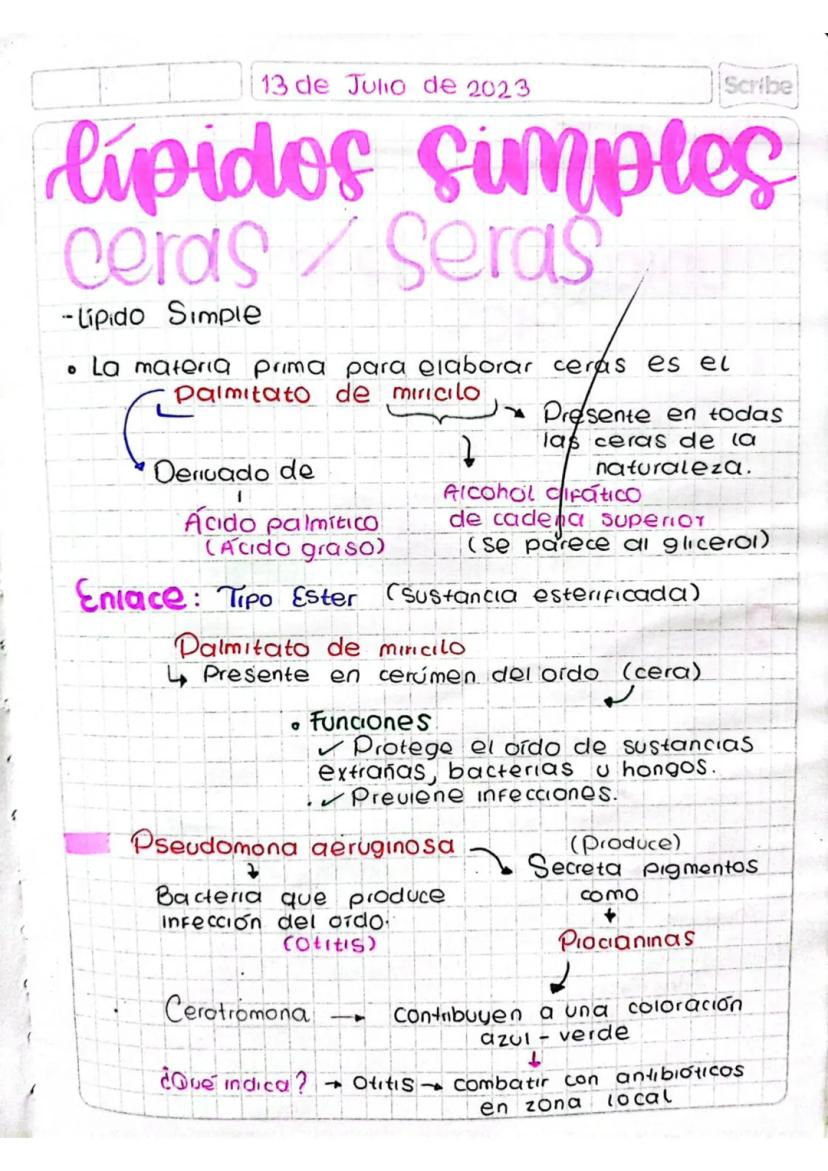 13 de Julio de 2023
Scribe
lípidos simples
ceras / seras
- Lípido Simple
• La materia prima para elaborar ceras es el
Palmitato de miricilo
→ Presente en todas
las ceras de la
naturaleza.
Derivado de
Ácido palmítico
(Ácido graso)
Alcohol alifático
de cadena superior
(se parece al glicerol)
Enlace: Tipo Ester (sustancia esterificada)
Palmitato de miricilo
↳ Presente en cerúmen del oído (cera)
• Funciones
✓ Protege el oído de sustancias
extrañas, bacterias u hongos.
✓ Previene infecciones.
Pseudomona aeruginosa
Bacteria que produce
infección del oído.
(Otitis)
(Produce)
Secreta pigmentos
como
Piocianinas
Cerotromona → contribuyen a una coloración
azul - verde
¿Qué indica? → Otitis → combatir con antibióticos
en zona local